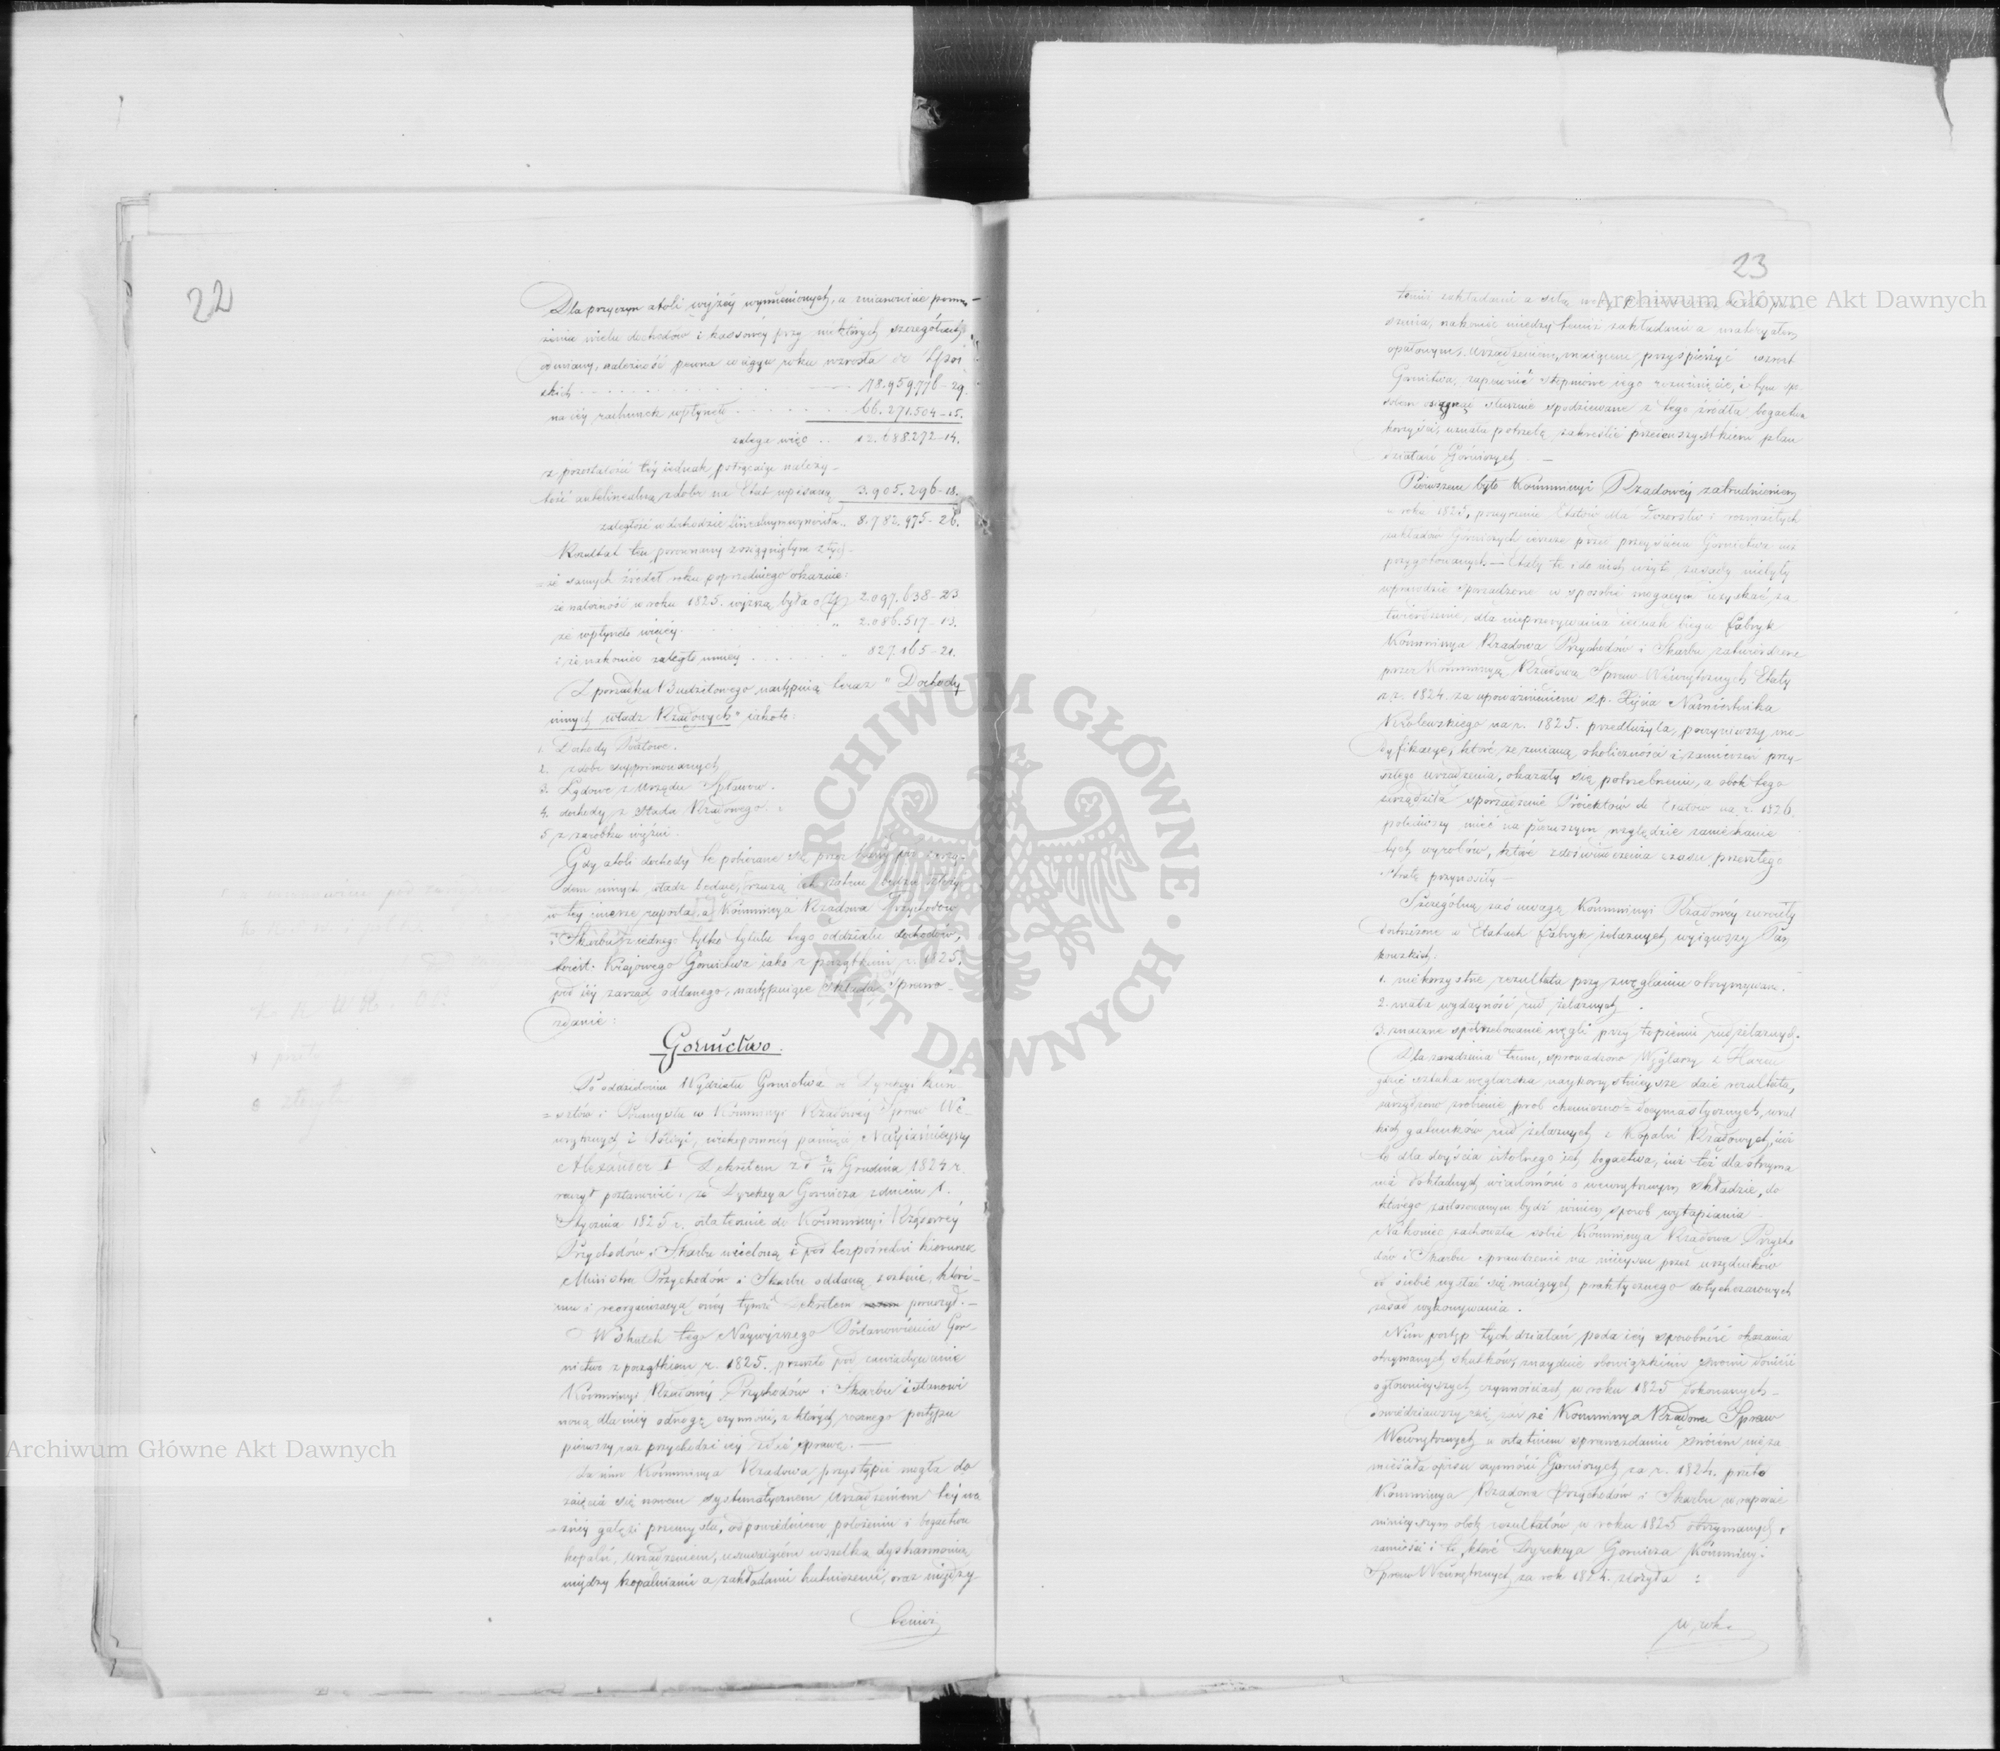 22
Dla przyczyn atoli wyżéy wymienionych, a mianowicie pomno-
żenia wielu dochodów i kassowéy przy niektórych szczegółach
odmiany, należność pewna w ciągu roku wzrosła do Złpol
skich 78.959,776-29.
na czéy rachunek wpłynęło 66.271.504-15.
zalega więc 12.688.272-14.
z pozostałości téy jednak, potrącając należy-
tość 3.905.296-18.
zaległość w dochodzie 8.782.975-26.
Rezultat ten porównany z osiągniętym z tych-
że samych źródeł roku poprzedniego okazuie:
że należność w roku 1825. wyższą była o Zł 2.097.638-23
że wpłynęło więcéy " 2.086.517-13.
i że nakoniec zaległo mniéy " 827.165-21.
Z porządku Budżetowego następuią teraz "Dochody
innych władz Rządowych" iakoto:
1. Dochody Pocztowe.
2. z dóbr suppressowanych
3. Lądowe z Urzędu Spławów.
4. dochody z Stada Rządowego.
5. z zarobku więźni.
Gdy atoli dochody te pobierane są przez Kassy pod zarzą-
dem innych władz będące,
w téy mierze raporta, a Kommissya Rządowa Przychodów
i Skarbu z iednego tylko tytułu tego oddziału dochodów,
to iest: Kraiowego Górnictwa iako z początkiem r. 1825.
pod iéy zarząd oddanego, następuiące składa Sprawo-
zdanie:
Gornictwo.
Po oddzieleniu Wydziału Górnictwa od Dyrekcyi Kun-
sztów i Przemysłu w Kommissyi Rządowéy Spraw We-
wnętrznych i Policyi, wiekopomnéy pamięci Nayiaśnieyszy
Alexander I Dekretem z d. 2/14 Grudnia 1824 r.
raczył postanowić, że Dyrekcya Górnicza z dniem 1.
Stycznia 1825 r. ostatecznie do Kommissyi Rządowéy
Przychodów i Skarbu wcieloną i pod bezpośredni kierunek
Ministra Przychodów i Skarbu oddaną zostanie, które-
mu i reorganizacyą onéy tymże Dekretem poruczył.-
W skutek tego Naywyższego Postanowienia Gór-
nictwo z początkiem r. 1825. przeszło pod zawiadywanie
Kommissyi Rządowéy Przychodów i Skarbu i stanowi
nową dla niéy odnogę czynności, z których rocznego postępu
pierwszy raz przychodzi iéy zdać sprawę.-
Zanim Kommissya Rządowa przystąpić mogła do
zaięcia się nowem systematycznem urządzeniem téy wa-
żnéy gałęzi przemysłu, odpowiedniem położeniu i bogactwu
kopalń, urządzeniem, usuwaiącém wszelką dysharmonią
między kopalniami a zakładami hutniczemi, oraz między
temiż
23
temiż zakładami a siłą wody
sznia, nakoniec między temiż zakładami a materyałem
opałowym, urządzeniem maiącem przyspieszyć wzrost
Górnictwa, zapewnić stopniowe iego rozwinięcie, i tym spo-
sobem osiągnąć słusznie spodziewane z tego źródła bogactwa
korzyści, uznała potrzebę zakreślić przedewszystkiem plan
działań Górniczych.-
Pierwszem było Kommissyi Rządowéy zatrudnieniem
w roku 1825. przeyrzenie Etatów dla Dozorstw i rozmaitych
zakładów Górniczych ieszcze przed przeyściem Górnictwa iuż
przygotowanych.- Etaty te i do nich użyte zasady nie były
wprawdzie sporządzone w sposobie mogącym uzyskać za-
twierdzenie, dla nieprzerywania iednak biegu Fabryk
Kommissya Rządowa Przychodów i Skarbu zatwierdzone
przez Kommissyą Rządową Spraw Wewnętrznych Etaty
z r. 1824. za upoważnieniem śp. Xięcia Namiestnika
Królewskiego na r. 1825. przedłużyła, poczyniwszy mo-
dyfikacye, które ze zmianą okoliczności i zamierzeń przy-
szłego urządzenia, okazały się potrzebnemi, a obok tego
zarządziła sporządzenie Proiektów do Etatów na r. 1826.
poleciwszy mieć na pierwszym względzie zaniechanie
tych wyrobów, które z doświadczenia czasu przeszłego
stratę przynosiły.-
Szczególną zaś uwagę Kommissyi Rządowéy zwróciły
dostrzeżone w Etatach Fabryk żelaznych wyiąwszy Pan
kowskich:
1. niekorzystne rezultata przy zwęglaniu otrzymywane.
2. mała wydayność rud żelaznych.
3. znaczne spotrzebowanie węgli przy topieniu rud żelaznych.
Dla zaradzenia temu, sprowadzono Węglarzy z Harcu
gdzie sztuka węglarska naykorzystnieysze daie rezultata,
zarządzono zrobienie prób chemiczno-docymastycznych, wszel
kich gatunków rud żelaznych z Kopalń Rządowych, iuż
to dla doyścia istotnego ich bogactwa, iuż też dla otrzyma
nia dokładnych wiadomości o wewnętrznym składzie, do
którego zastosowanym bydź winien sposób wytapiania.-
Nakoniec zachowała sobie Kommissya Rządowa Przycho
dów i Skarbu sprawdzenie na mieyscu przez urzędników
od siebie wysłać się maiących praktycznego dotychczasowych
zasad wykonywania.
Nim postęp tych działań poda iéy sposobność okazania
otrzymanych skutków, znayduie obowiązkiem swoim donieść
o główniéyszych czynnościach w roku 1825 dokonanych.-
Dowiedziawszy się zaś że Kommissya Rządowa Spraw
Wewnętrznych w ostatniem sprawozdaniu swoiém nie za
mieściła opisu czynności Górniczych za r. 1824. przeto
Kommissya Rządowa Przychodów i Skarbu w raporcie
ninieyszym obok rezultatów, w roku 1825 otrzymanych,
zamieści i te, które Dyrekcya Górnicza Kommissyi
Spraw Wewnętrznych za rok 1824. złożyła:
Archiwum Główne Akt Dawnych
Archiwum Główne Akt Dawnych
ARCHIWUM GŁÓWNE AKT DAWNYCH